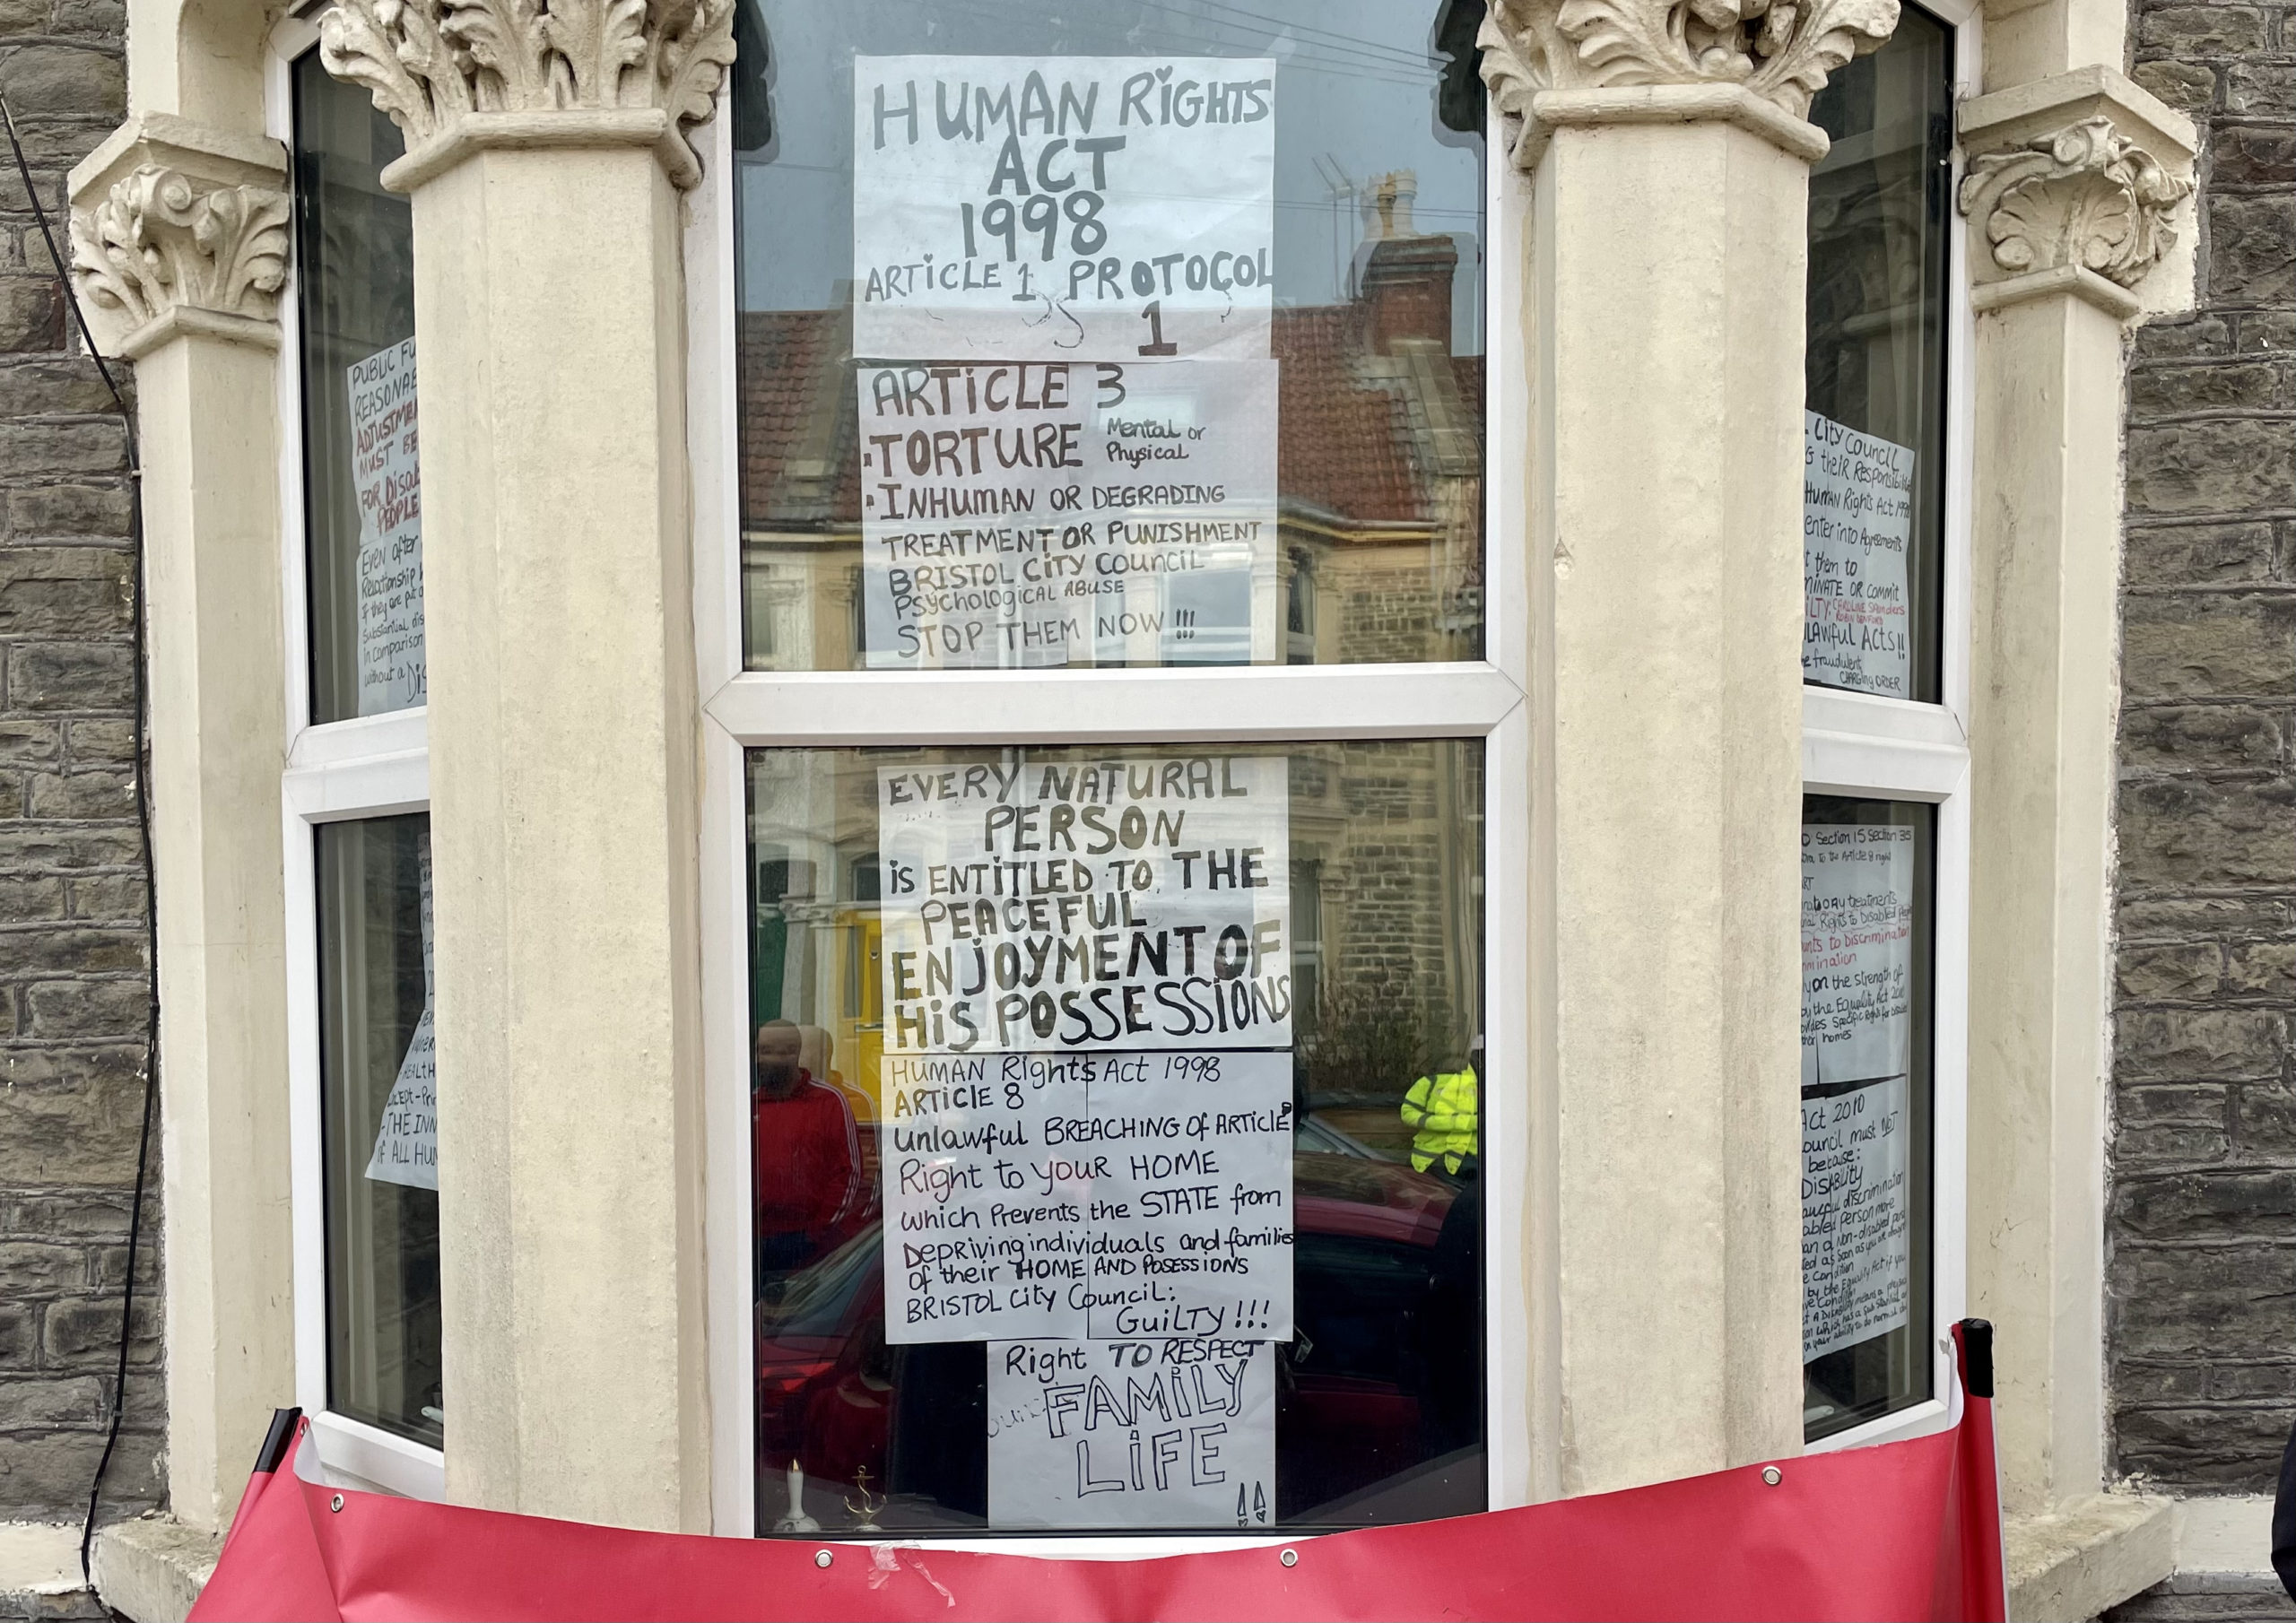 HUMAN RiGHTS
ACT
1998
ARTiCLE 1 PROTOCOL
1
ARTiCLE 3
TORTURE Mental or
Physical
INHUMAN OR DEGRADING
TREATMENT OR PUNISHMENT
BRISTOL CiTY COUNCiL
PSYCHOLOGICAL ABUSE
STOP THEM NOW !!!
EVERY NATURAL
PERSON
iS ENTiTLED TO THE
PEACEFUL
ENJOYMENT OF
HiS POSSESSiONS
HUMAN Rights Act 1998
ARTICLE 8
Unlawful BREACHING Of ARTiCLE
Right to YOUR HOME
which Prevents the STATE from
Depriving individuals and families
of their HOME AND POSESSiONS
BRISTOL City Council:
GuiLTY !!!
Right TO RESPECT
FAMiLY
LiFE
!!
PUBLIC FU
REASONAB
ADJUSTME
MUST BE
FOR DISAB
PEOPLE
Even after
Relationship
if they are put
Substantial dis
in comparison
without a Dis
HEALTH
THE INN
of ALL HUM
City Council
their Responsibili
Human Rights Act 1998
enter into Agreements
t them to
MINATE OR COMMIT
ILTY: CAROLINE
LAWFUL ACTS!!
e fraudulent
CHARGING ORDER
Section 15 Section 35
to the Article 8 right
RT
atory treatments
Rights to Disabled
nts to Discrimination
mination
on the strength of
by the Equality Act 2010
vides Specific Rights for
homes
Act 2010
ouncil must NOT
because:
DISABILITY
awful discrimination
abled person more
an a Non-disabled
ed as soon as you
e Condition
by the Equality Act if you